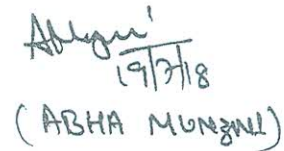 19/7/18
(ABHA MUNZNI)